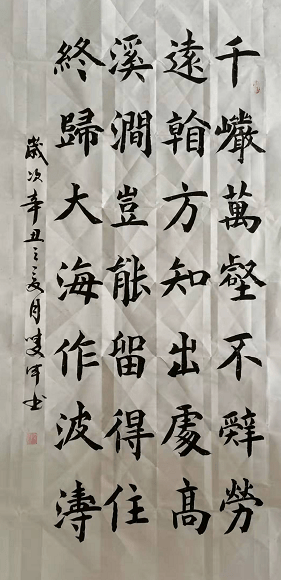 千巗萬壑不辭勞
遠看方知出處高
溪澗豈能留得住
終歸大海作波濤
歲次辛丑之夏月書